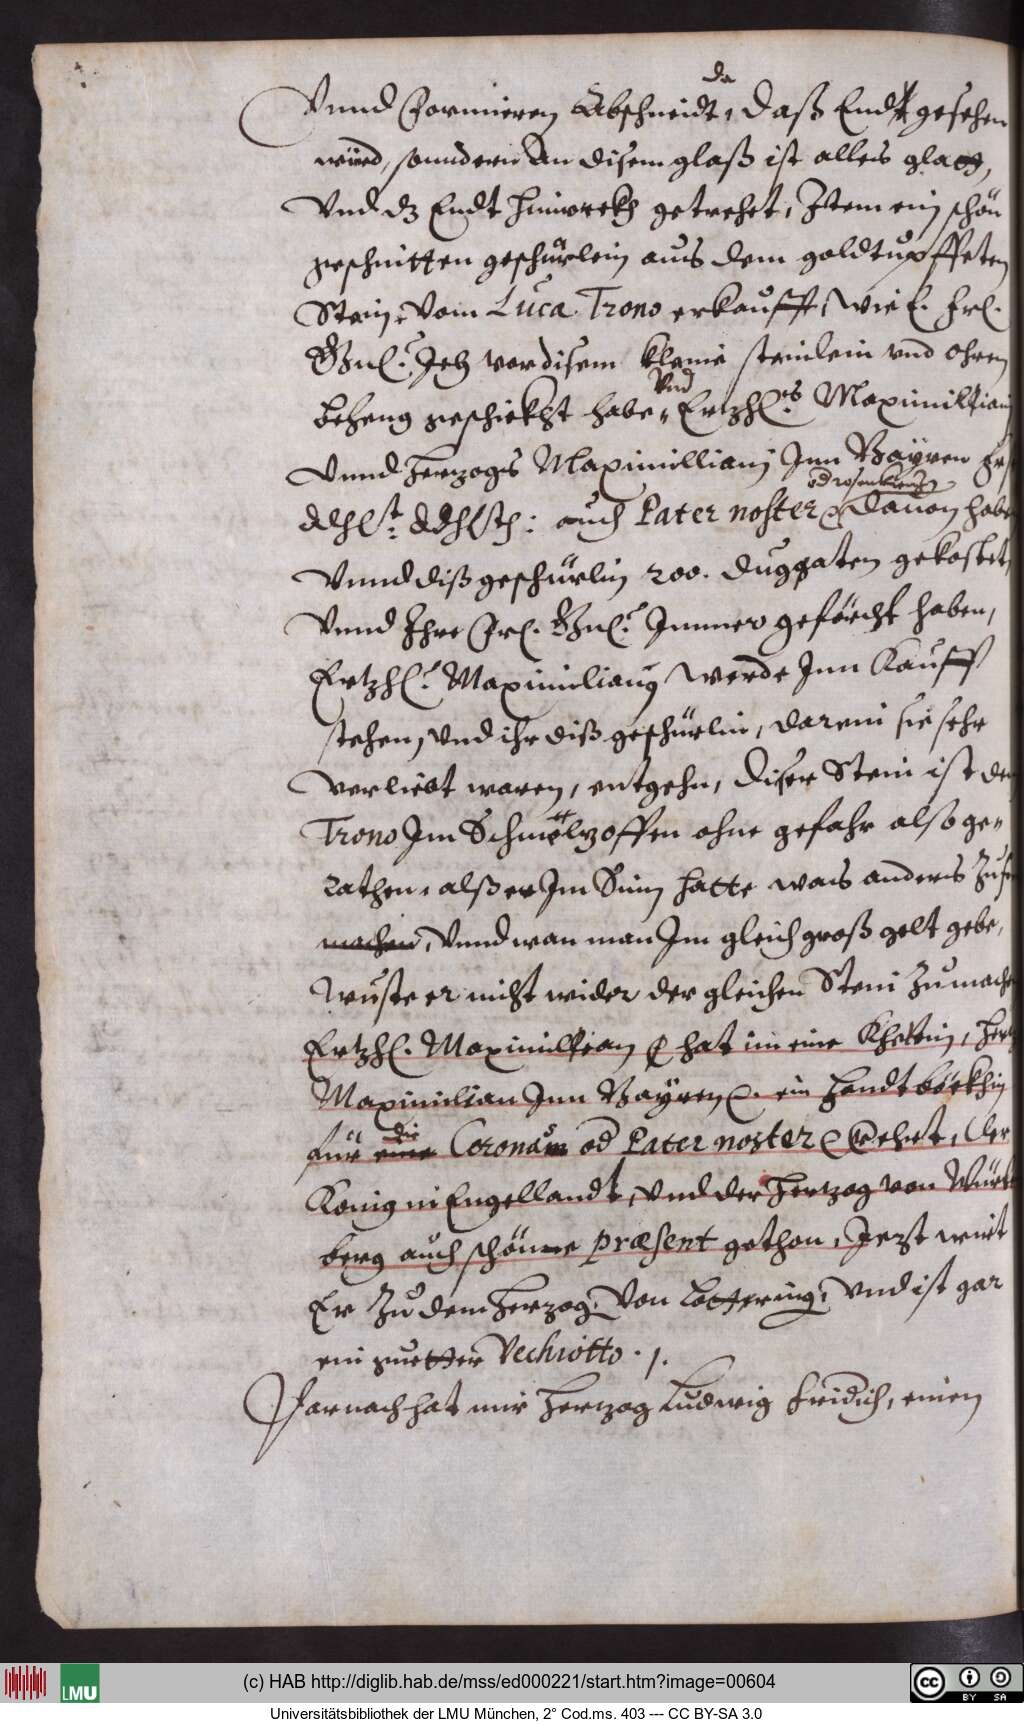 da
Vnnd Formieren Abschneidt, daß Endt gesehen
würd, sonndern An disem glaß ist alles glatt,
Vnd dz Endt hinwekh getrehet, Item ein schön
geschnitten geschürlein aus dem goldtupffeten
Stein, vom Luca Trono erkaufft, wie E. Frl.
Gnl. Ich vor disem kleine steinlein vnd ohren
vnd
beheng geschickht habe, Ertzhl. Maximillian
Vnnd Hertzogs Maximilliani Inn Bayren
od rosenkrentz
auch Pater noster dauon haben
Vnnd diß geschürlin 200. duggaten gekostet,
Vnnd Ihre Frl. Gnl. Immer geförcht haben,
Ertzhl. Maximilianus werde Inn Kauff
stehen, vnd ihr diß geschürlin, darein sie sehr
verliebt waren, entgehn, diser Stein ist dem
Trono Im Schmeltzoffen ohne gefahr also ge-
rathen, alß er Im Sinn hatte was anders Zu
machen, Vnnd wan man Im gleich groß gelt gebe,
wuste er nicht wider der gleichen Stein Zumachen
Ertzhl. Maximillian hat im eine Khettin, Hertzog
Maximilian Inn Bayren ein Handtböckhin
die
für eine Corona od Pater noster verehrt, Der
König in Engellandt, vnd der Hertzog von Würt
berg auch schöne præsent gethon, Jetzt wirt
Er Zu dem Hertzog von Lottering, vnd ist gar
ein guetter Vechiotto. /.
Darnach hat mir Hertzog Ludwig Fridich, einen
(c) HAB http://diglib.hab.de/mss/ed000221/start.htm?image=00604
LMU
CC BY SA
Universitätsbibliothek der LMU München, 2° Cod.ms. 403 --- CC BY-SA 3.0